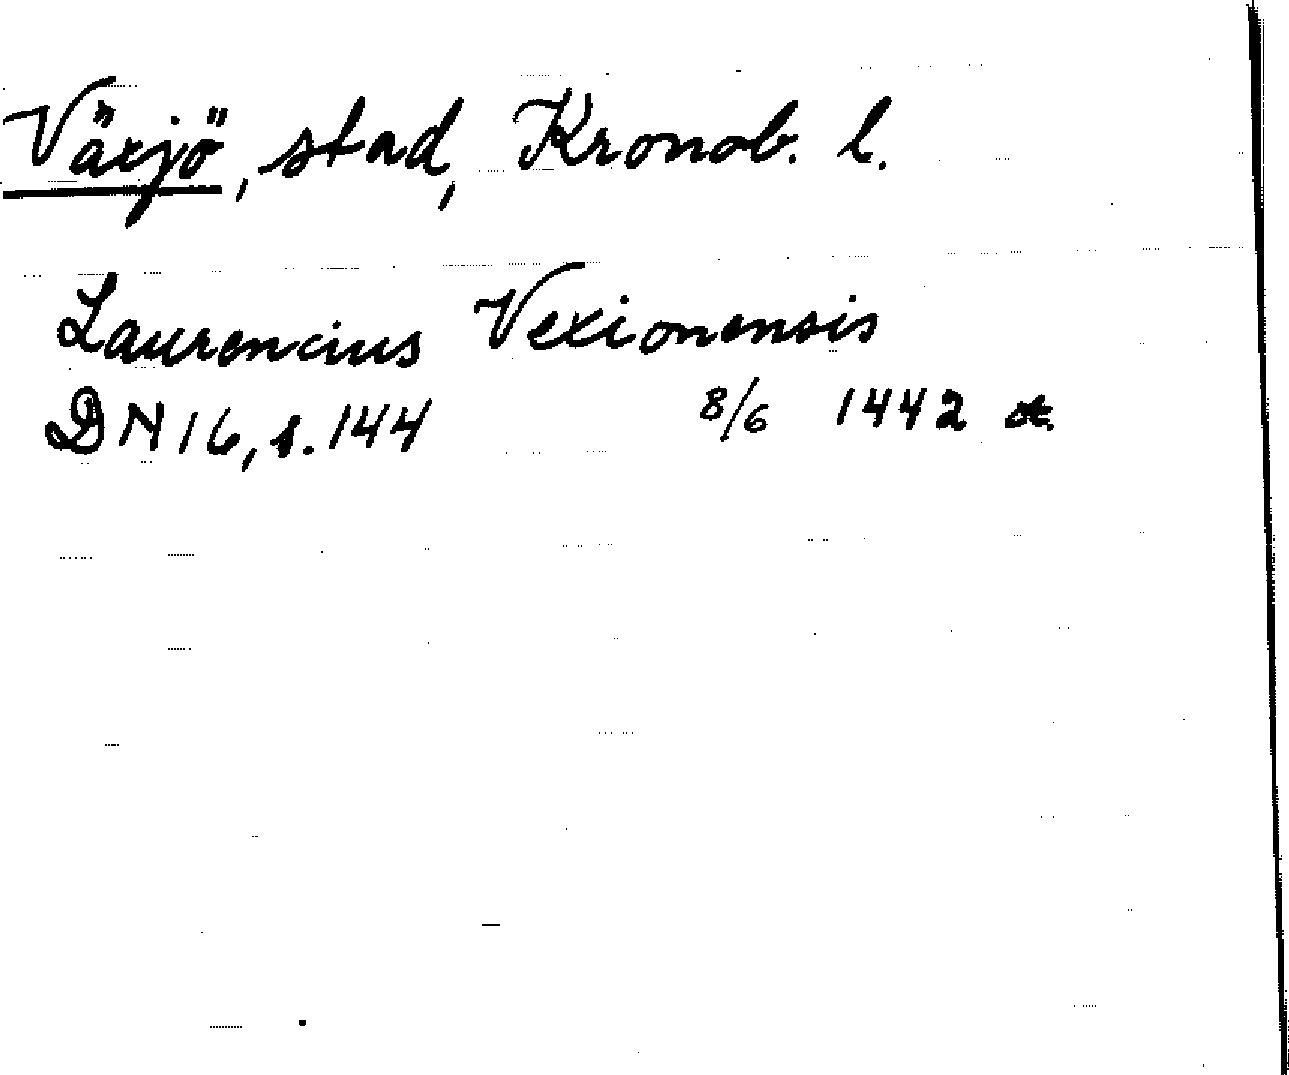 Växjö, stad, Kronob. l.
Laurencius Vexionensis
DN 16, s. 144 8/6 1442 or.